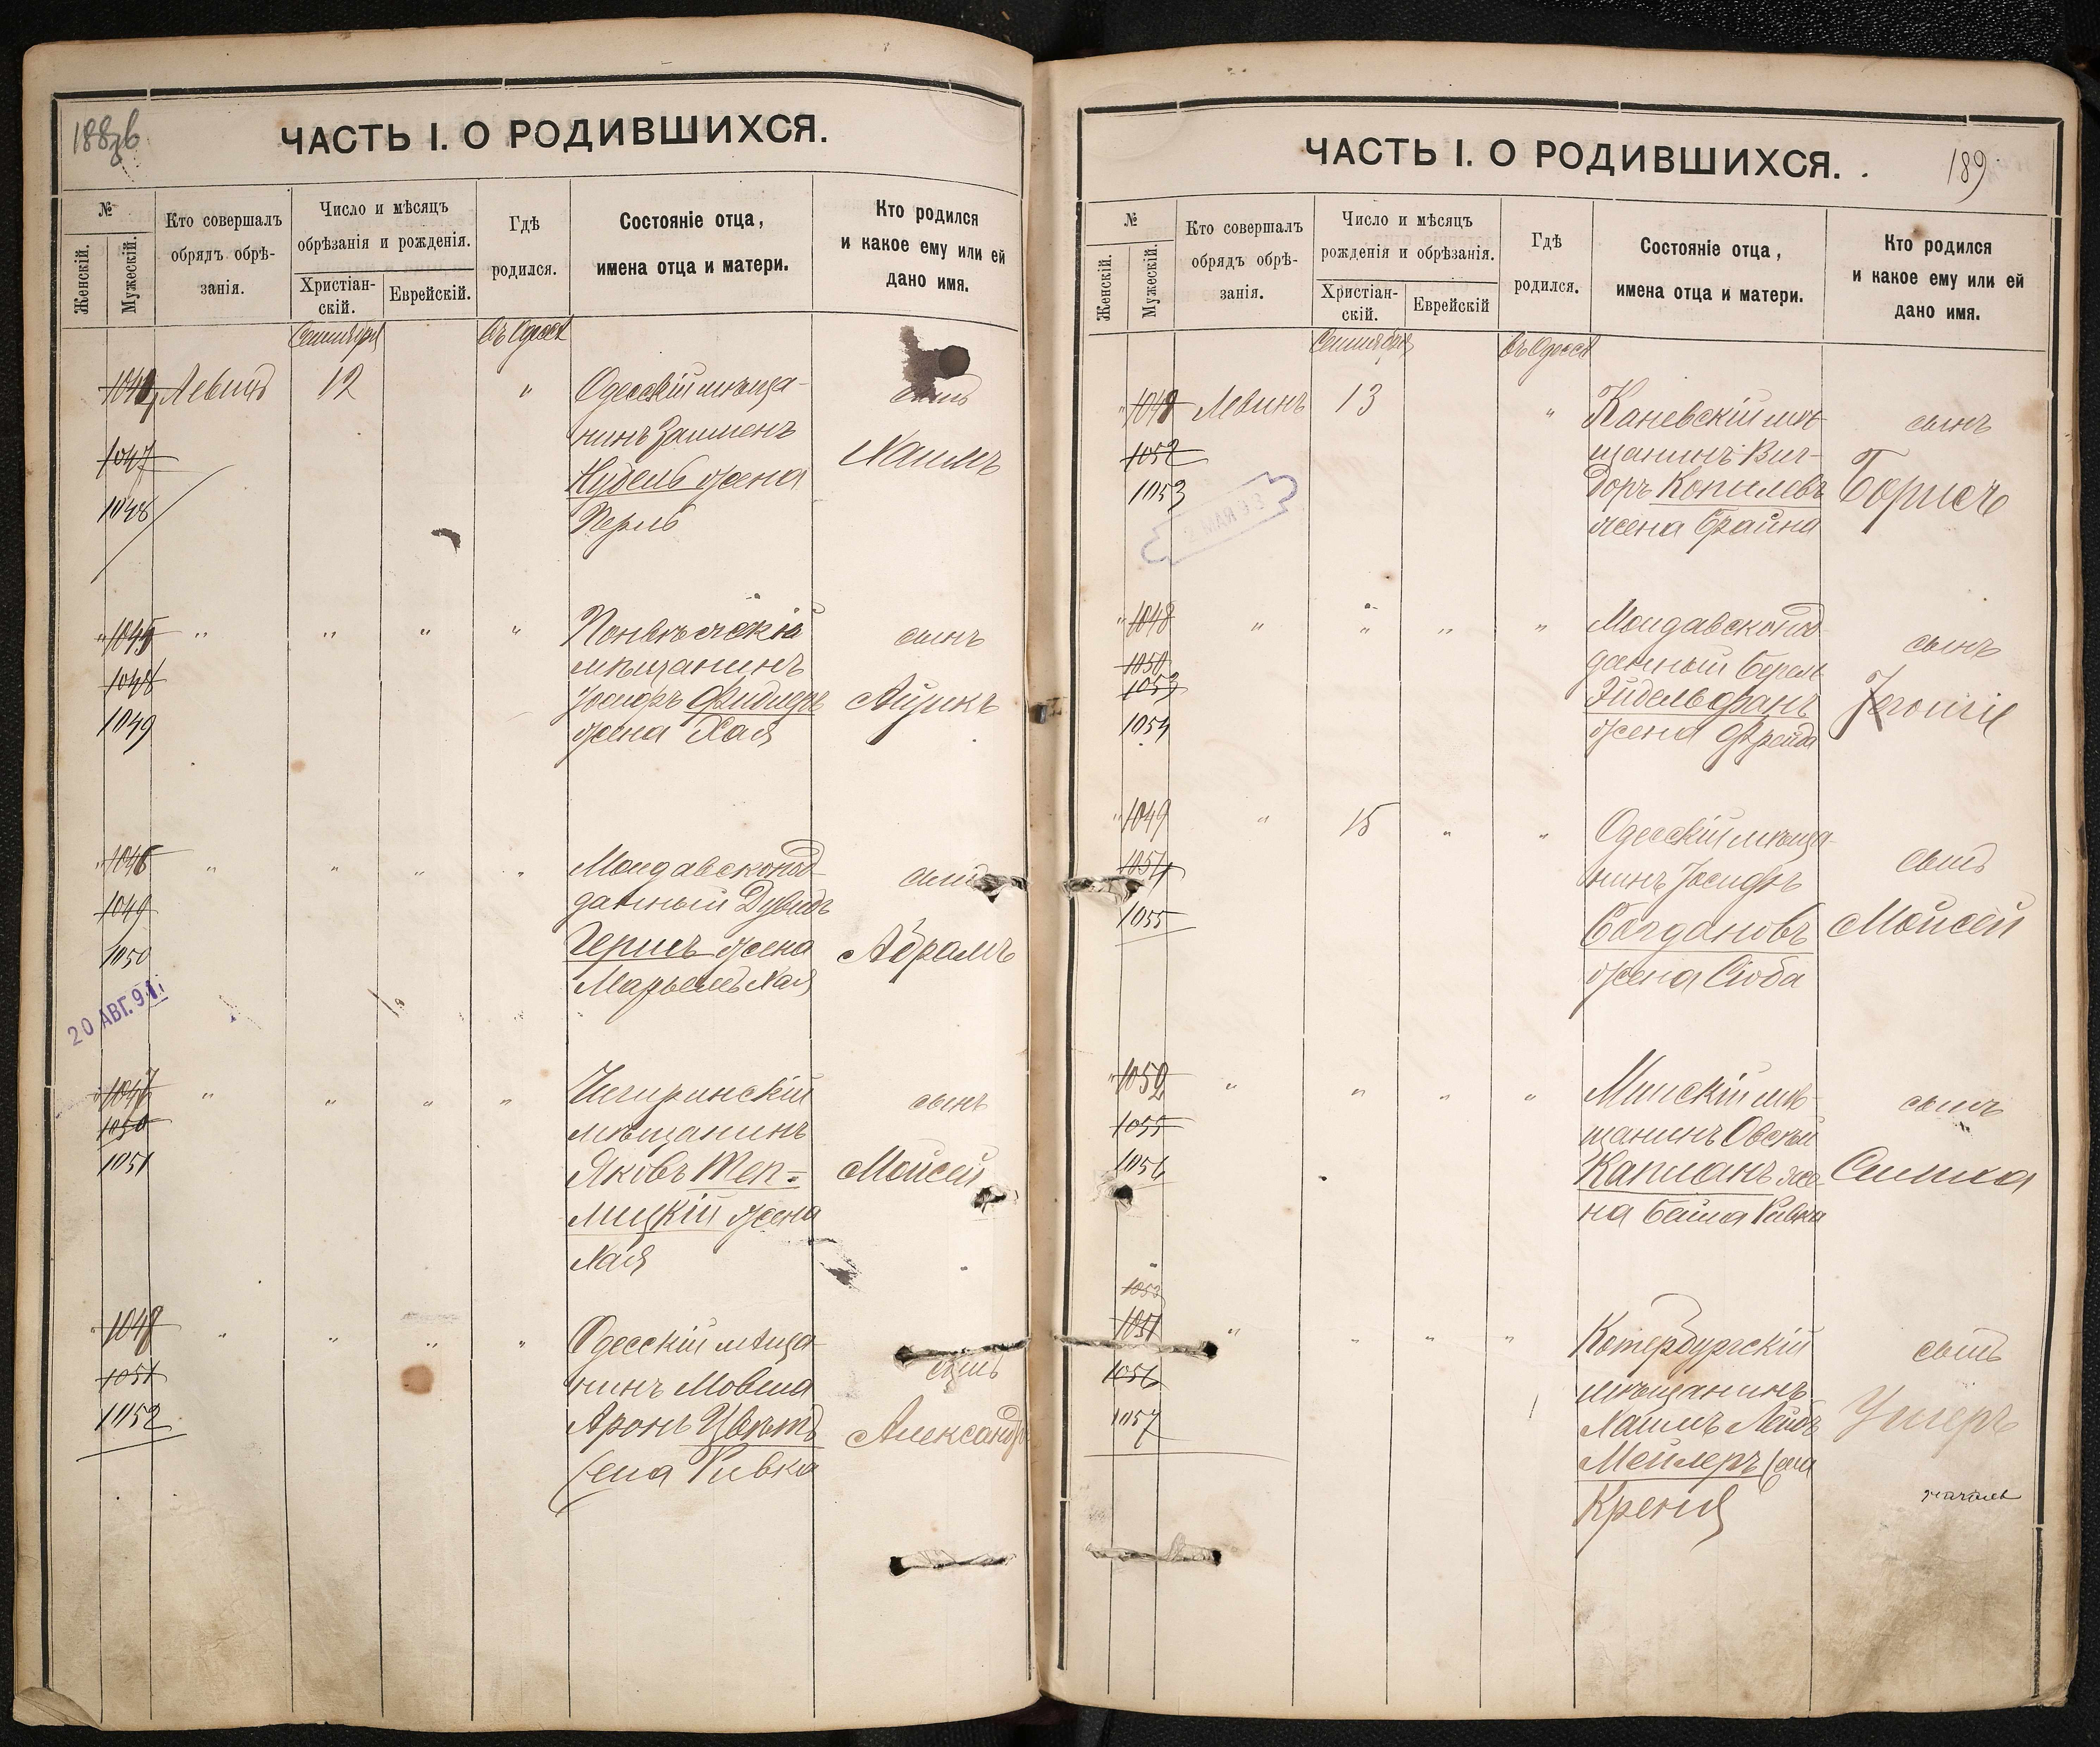 ЧАСТЬ I. О РОДИВШИХСЯ.
№
Женскій.
Мужескій.
Кто совершалъ
обрядъ обрѣ-
занія.
Число и мѣсяцъ
обрѣзанія и рожденія.
Христіан-
скій.
Еврейскій.
Гдѣ
родился.
Состояніе отца,
имена отца и матери.
Кто родился
и какое ему или ей
дано имя.
Сентября
въ Одессѣ
Левинъ 12 " Одесскій мѣща-
нинъ Залменъ
Нудель жена
Перль
сынъ
Хаимъ
1047
1048
" " " " " мѣщанинъ
Іосифъ
жена Хая
сынъ
Айзикъ
1048
1049
" 1046 " " " " Молдавскопод-
данный Дувидъ
Герисъ жена
Марьемъ Хая
сынъ
Абрамъ
1049
1050
20 АВГ. 91
" 1047 " " " " Чигиринскій
мѣщанинъ
Яковъ Теп-
лицкій жена
Хая
сынъ
Мойсей
1050
1051
" 1048 " " " " Одесскій мѣща-
нинъ Мовша
Аронъ Цвѣтъ
жена Ривка
сынъ
Александръ
1051
1052
ЧАСТЬ I. О РОДИВШИХСЯ.
189
№
Женскій.
Мужескій.
Кто совершалъ
обрядъ обрѣ-
занія.
Число и мѣсяцъ
рожденія и обрѣзанія.
Христіан-
скій.
Еврейскій
Гдѣ
родился.
Состояніе отца,
имена отца и матери.
Кто родился
и какое ему или ей
дано имя.
Сентября
въ Одессѣ
Левинъ 13 " Каневскій мѣ-
щанинъ Виг-
доръ Копилевъ
жена Брайна
сынъ
Борисъ
1052
1053
" 1048 " " " " Молдавскопод-
данный Берль
Эйдельфанъ
жена Фрейда
сынъ
1050
1053
1054
" 1049 " 15 " " Одесскій мѣща-
нинъ Іосифъ
Богдановъ
жена Сюба
сынъ
Мойсей
1054
1055
" " " " " Минскій мѣ-
щанинъ Овсѣй
Капланъ же-
на Бейла Ривка
сынъ
Симха
1055
1056
1053
1051 " " " " Котербургскій
мѣщанинъ
Хаимъ Лейбъ
Мейлеръ жена
Креня
сынъ
Ушеръ
1056
1057